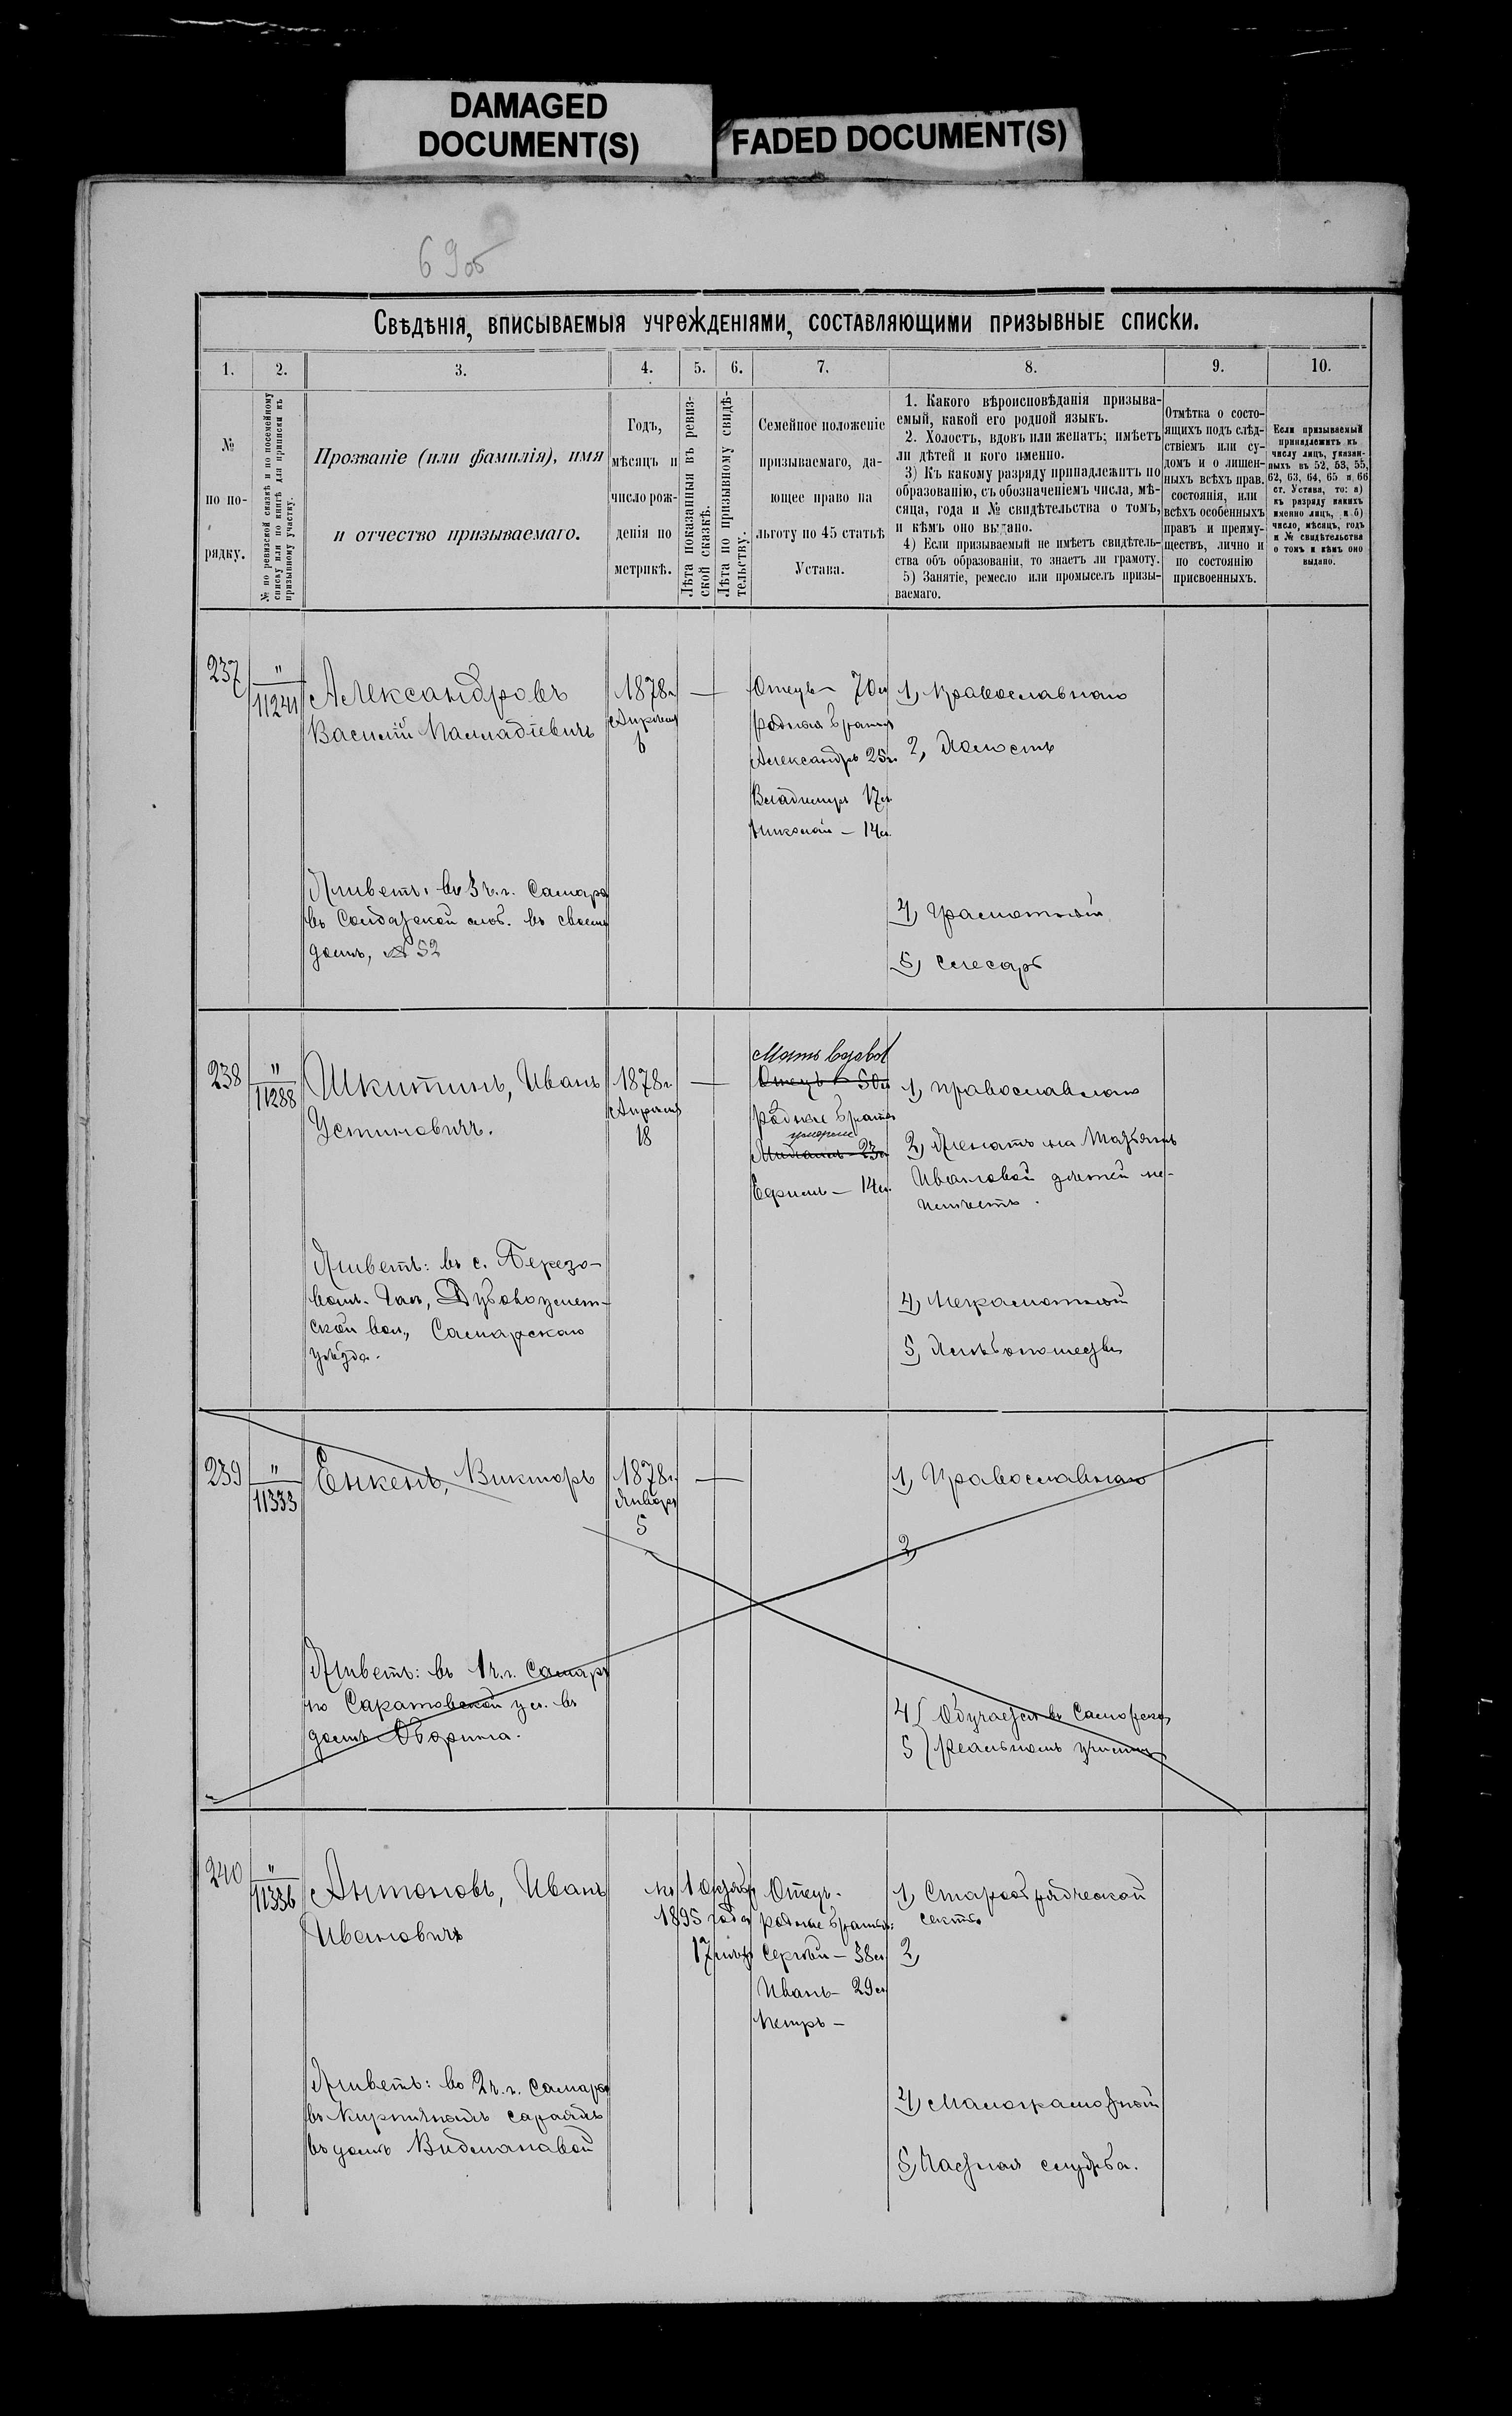 DAMAGED
DOCUMENT(S)
FADED DOCUMENT(S)
69об
Свѣдѣнія, вписываемыя учрежденіями, составляющими призывные списки.
1. 2. 3. 4. 5. 6. 7. 8. 9. 10.
№
по по-
рядку.
№ по ревизской сказкѣ и по посемейному
списку или по книгѣ для приписки къ
призывному участку.
Прозваніе (или фамилія), имя
и отчество призываемаго.
Годъ,
мѣсяцъ и
число рож-
денія по
метрикѣ.
Лѣта показанныя въ ревиз-
ской сказкѣ.
Лѣта по призывному свидѣ-
тельству.
Семейное положеніе
призываемаго, да-
ющее право на
льготу по 45 статьѣ
Устава.
1. Какого вѣроисповѣданія призыва-
емый, какой его родной языкъ.
2. Холостъ, вдовъ или женатъ; имѣетъ
ли дѣтей и кого именно.
3) Къ какому разряду принадлежитъ по
образованію, съ обозначеніемъ числа, мѣ-
сяца, года и № свидѣтельства о томъ,
и кѣмъ оно выдано.
4) Если призываемый не имѣетъ свидѣтель-
ства объ образованіи, то знаетъ ли грамоту.
5) Занятіе, ремесло или промыселъ призы-
ваемаго.
Отмѣтка о состо-
ящихъ подъ слѣд-
ствіемъ или су-
домъ и о лишен-
ныхъ всѣхъ прав.
состоянія, или
всѣхъ особенныхъ
правъ и преиму-
ществъ, лично и
по состоянію
присвоенныхъ.
Если призываемый
принадлежитъ къ
числу лицъ, указан-
ныхъ въ 52, 53, 55,
62, 63, 64, 65 и 66
ст. Устава, то: а)
къ разряду какихъ
именно лицъ, и б)
число, мѣсяцъ, годъ
и № свидѣтельства
о томъ и кѣмъ оно
выдано.
237
"
11241
Александровъ
Василій Палладіевичъ
1878г
Апрѣля
6
—
Отецъ – 70л
родные братья
Александръ 25л
Владимиръ 17л
Николай – 14л.
1, Православнаго
2, Холостъ
Живетъ: въ 3 ч. г. Самары
въ Солдатской слоб. въ своемъ
домѣ, № 52
4, Грамотный
5, Слесарь
238
"
11288
Шкитинъ, Иванъ
Устиновичъ.
1878г
Апрѣля
18
—
Мать вдова
Отецъ – 50л
родные братья
умеръ
Михаилъ – 23л
Ефимъ – 14л.
1, Православнаго
2, Женатъ на Татьянѣ
Ивановой дѣтей не-
имѣетъ.
Живетъ: въ с. Березо-
вомъ Гаѣ, Дубовоумет-
ской вол., Самарскаго
уѣзда.
4, Неграмотный
5, Хлѣбопашество
239
"
11333
Енкенъ, Викторъ
1878г.
Января
5
—
1, Православнаго
2,
Живетъ: въ 1 ч. г. Самары
по Саратовской ул. въ
домѣ Оборина.
4 Обучается въ Самарско
5 реальномъ училищѣ
240
"
11336
Антоновъ, Иванъ
Ивановичъ
къ 1 Октября
1895 года
17 лѣтъ
Отецъ.
родные братья:
Сергѣй – 38л
Иванъ – 29л
Петръ –
1, Старообрядческой
секты
2,
Живетъ: во 2 ч. г. Самары
въ Кирпичномъ сараѣ
въ домѣ
4, Малограмотный
5, Частная служба.